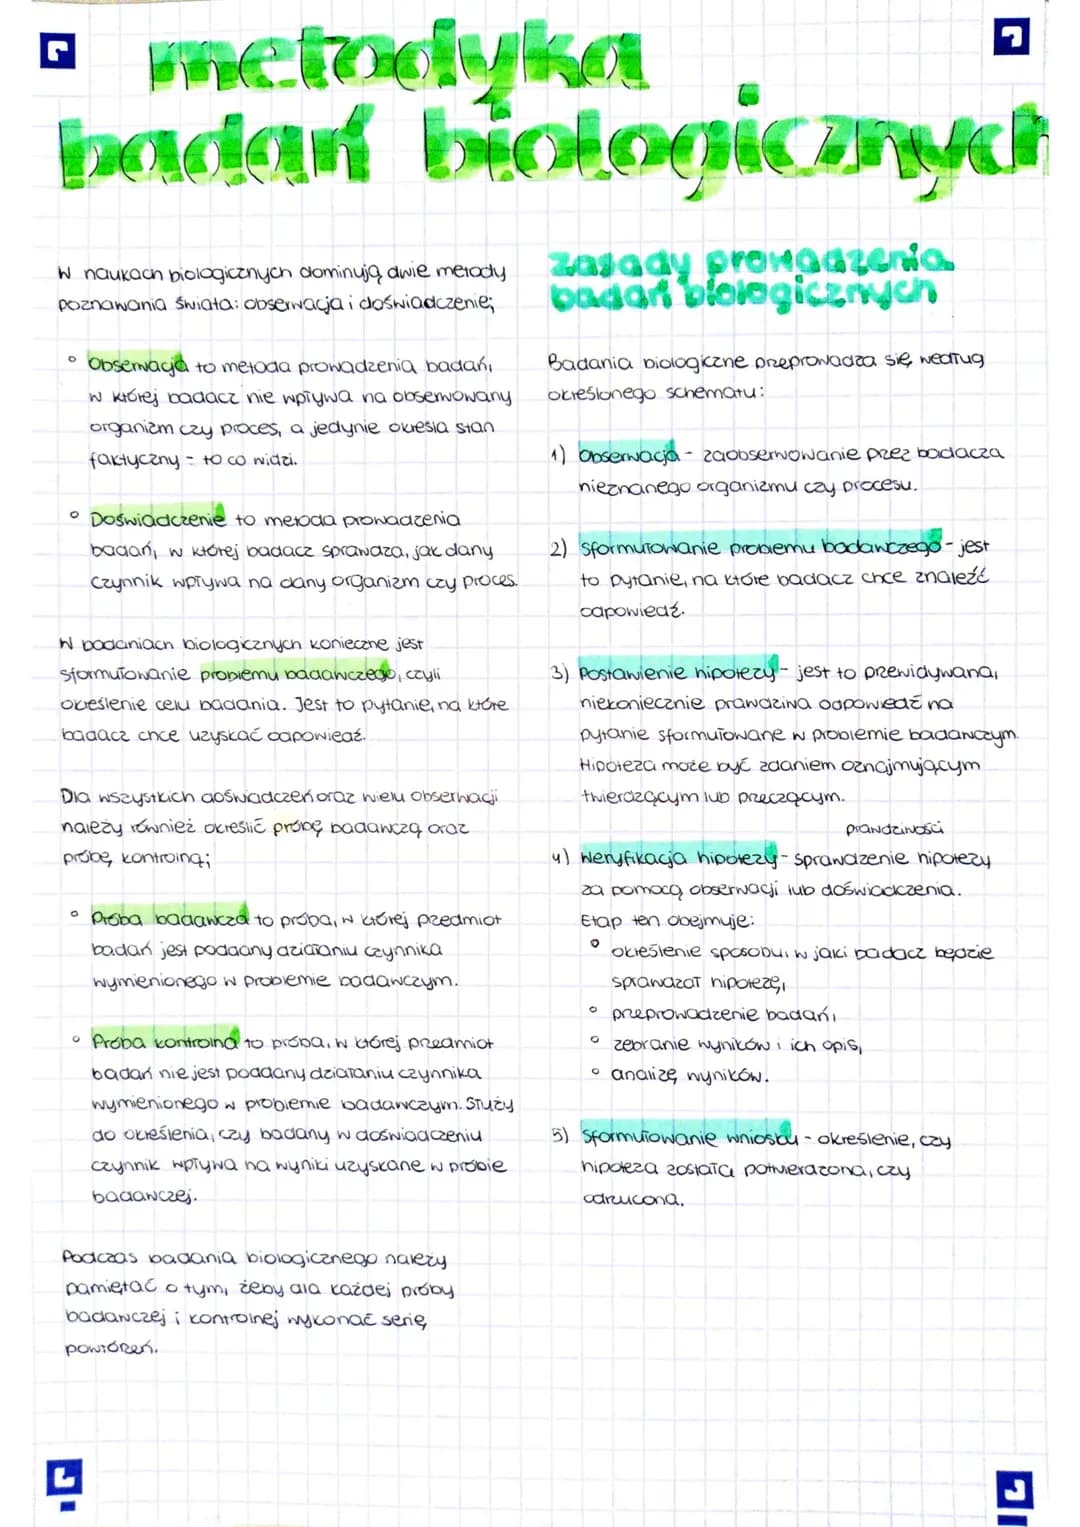 metodyka
badań biologicznych
W naukach biologicznych dominują dwie metody
poznawania świata: obserwacja i doświadczenie;
° Obserwacja to metoda prowadzenia badań,
w której badacz nie wpływa na obserwowany
organizm czy proces, a jedynie określa stan
faktyczny - to co widzi.
° Doświadczenie to metoda prowadzenia
badań, w której badacz sprawdza, jak dany
czynnik wpływa na dany organizm czy proces.
W badaniach biologicznych konieczne jest
sformułowanie problemu badawczego, czyli
określenie celu badania. Jest to pytanie, na które
badacz chce uzyskać odpowiedź.
Dla wszystkich doświadczeń oraz wielu obserwacji
należy również określić próbę badawczą oraz
próbę kontrolną;
° Próba badawcza to próba, w której przedmiot
badań jest poddany działaniu czynnika
wymienionego w problemie badawczym.
° Próba kontrolna to próba, w której przedmiot
badań nie jest poddany działaniu czynnika
wymienionego w problemie badawczym. Służy
do określenia, czy badany w doświadczeniu
czynnik wpływa na wyniki uzyskane w próbie
badawczej.
Podczas badania biologicznego należy
pamiętać o tym, żeby dla każdej próby
badawczej i kontrolnej wykonać serię
powtórzeń.
zasady prowadzenia
badań biologicznych
Badania biologiczne przeprowadza się według
określonego schematu:
1) Obserwacja - zaobserwowanie przez badacza
nieznanego organizmu czy procesu.
2) Sformułowanie problemu badawczego - jest
to pytanie, na które badacz chce znaleźć
odpowiedź.
3) Postawienie hipotezy - jest to przewidywana,
niekoniecznie prawdziwa odpowiedź na
pytanie sformułowane w problemie badawczym.
Hipoteza może być zdaniem oznajmującym
twierdzącym lub przeczącym.
prawdziwości
4) Weryfikacja hipotezy - sprawdzenie hipotezy
za pomocą obserwacji lub doświadczenia.
Etap ten obejmuje:
° określenie sposobu, w jaki badacz będzie
sprawdzał hipotezę,
° przeprowadzenie badań,
° zebranie wyników i ich opis,
° analizę wyników.
5) Sformułowanie wniosku - określenie, czy
hipoteza została potwierdzona, czy
odrzucona.